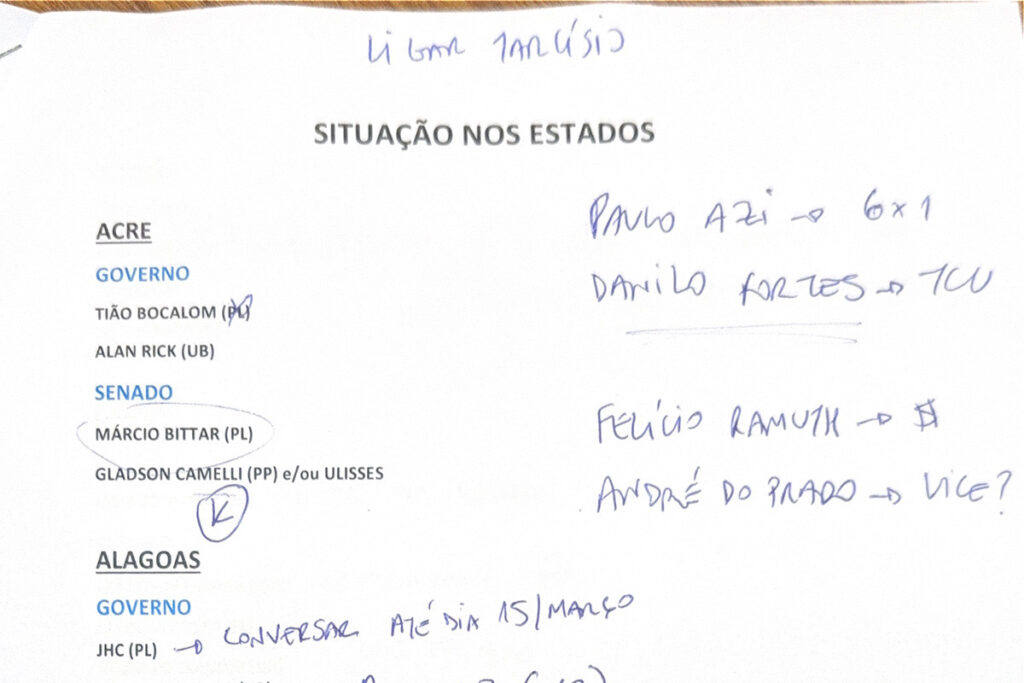 LIGAR TARCÍSIO
SITUAÇÃO NOS ESTADOS
PAULO AZI → 6x1
DANILO FORTES → TCU
ACRE
GOVERNO
TIÃO BOCALOM (PL)
ALAN RICK (UB)
SENADO
MÁRCIO BITTAR (PL)
GLADSON CAMELLI (PP) e/ou ULISSES
K
FELÍCIO RAMUTH → $
ANDRÉ DO PRADO → VICE?
ALAGOAS
GOVERNO
JHC (PL) → CONVERSAR ATÉ DIA 15/MARÇO